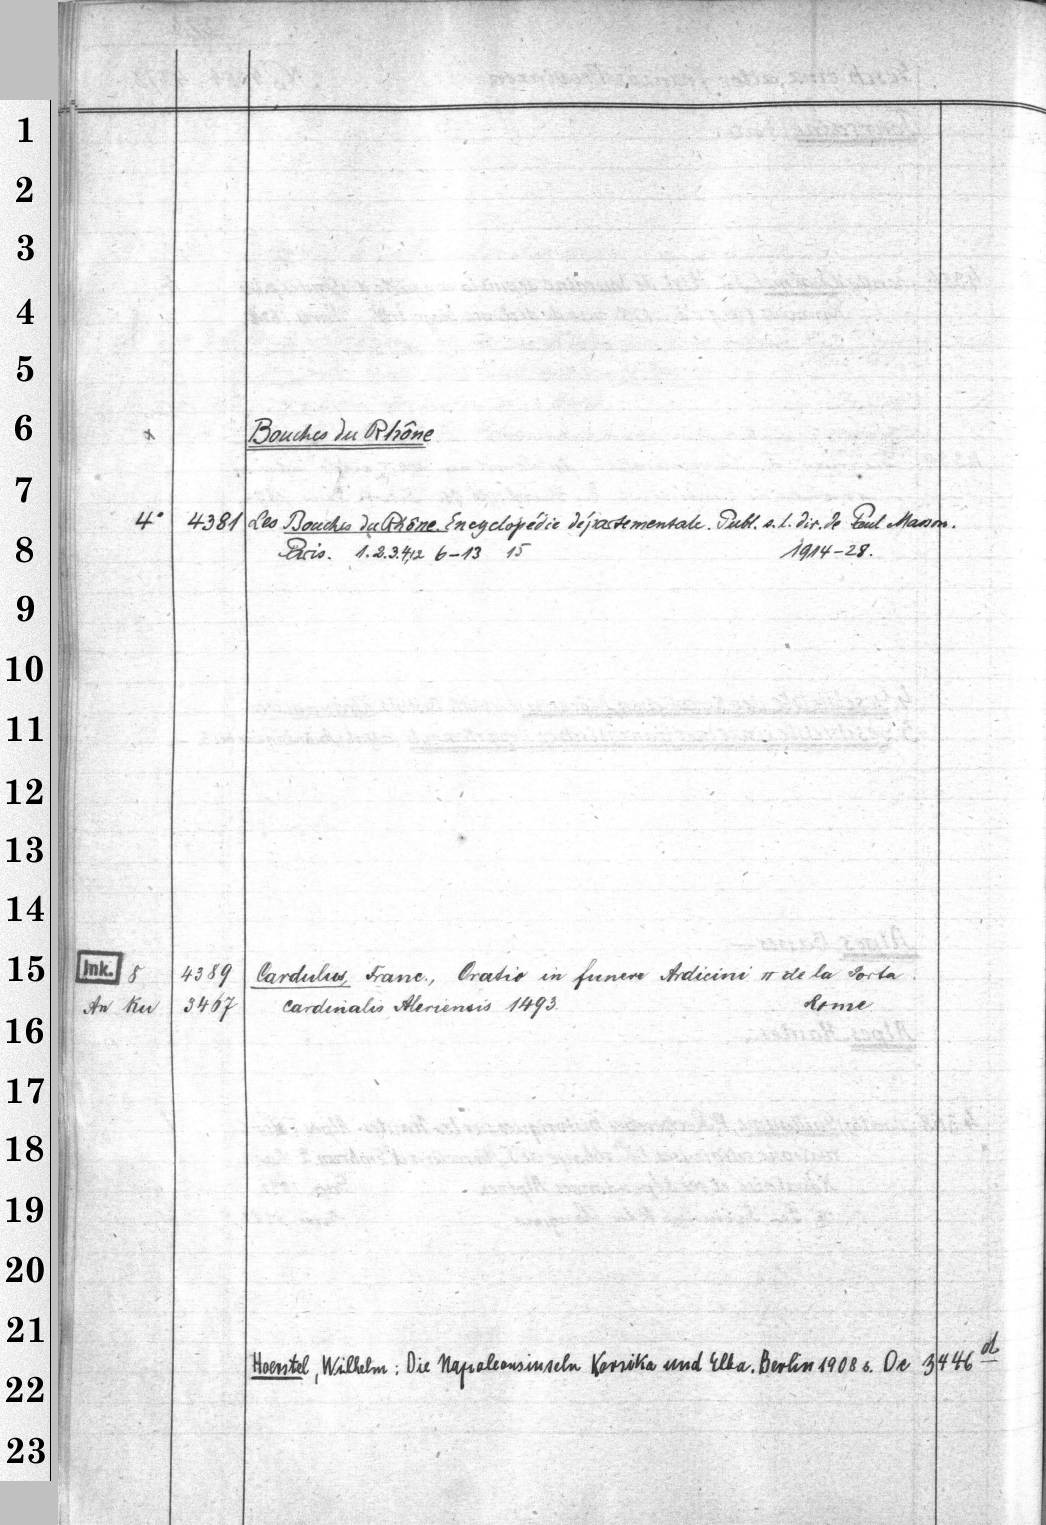 1
2
3
4
5
6 x Bouches du Rhône
7
4° 4381 Les Bouches du Rhône Encyclopédie départementale. Publ. s. l. dir. de Paul Masson.
8 Paris. 1.2.3.4,1.2 6-13 15 1914-28.
9
10
11
12
13
14
15 Ink. 8 4389 Cardulus, Franc., Oratio in funere Ardicini de la Porta
An Ku 3467 Cardinalis Aleriensis 1493. Rome
16
17
18
19
20
21
Hoerstel, Wilhelm: Die Napoleonsinseln Korsika und Elba. Berlin 1908 s. De 3446 d
22
23